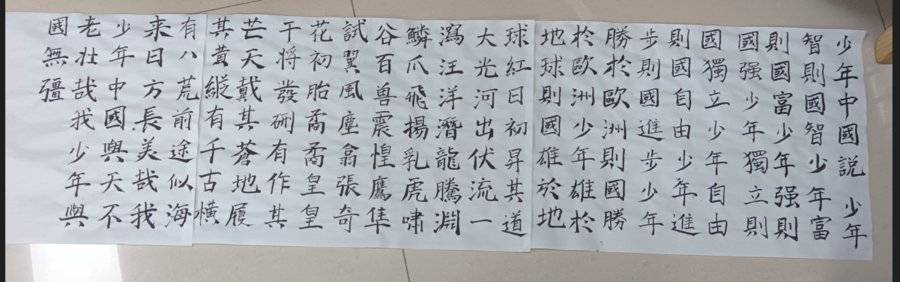 少年中國説 少年
智則國智少年富
則國富少年强則
國强少年獨立則
國獨立少年自由
則國自由少年進
步則國進步少年
勝於歐洲則國勝
於歐洲少年雄於
地球則國雄於地
球紅日初昇其道
大光河出伏流一
瀉汪洋潛龍騰淵
鱗爪飛揚乳虎嘯
谷百兽震惶鷹隼
試翼風塵翕張奇
花初胎矞矞皇皇
干将發硎有作其
芒天戴其蒼地履
其黄縱有千古橫
有八荒前途似海
来日方長美哉我
少年中國與天不
老壮哉我少年與
國無疆